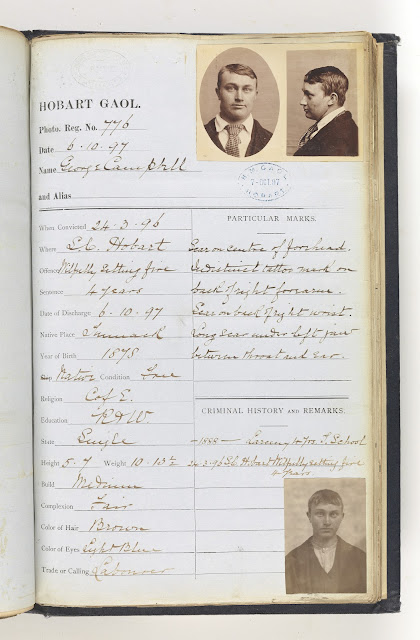 HOBART GAOL.
Photo. Reg. No. 776
Date 6.10.97
Name George Campbell
H.M. GAOL
7-OCT.97
HOBART
and Alias
When Convicted 24-3-96
Where S.C. Hobart
Offence Wilfully setting fire
Sentence 4 years
Date of Discharge 6.10.97
Native Place Tunnack
Year of Birth 1878
Ship Native Condition Free
Religion C of E.
Education R & W.
State Single
Height 5-7 Weight 10-13½
Build Medium
Complexion Fair
Color of Hair Brown
Color of Eyes Light Blue
Trade or Calling Labourer
PARTICULAR MARKS.
Scar on centre of forehead.
Indistinct tattoo mark on
back of right forearm.
Scar on back of right wrist.
Long scar under left jaw
between throat and ear.
CRIMINAL HISTORY AND REMARKS.
-1888- Larceny T. School
24-3-96 S.C. Hobart Wilfully setting fire
years